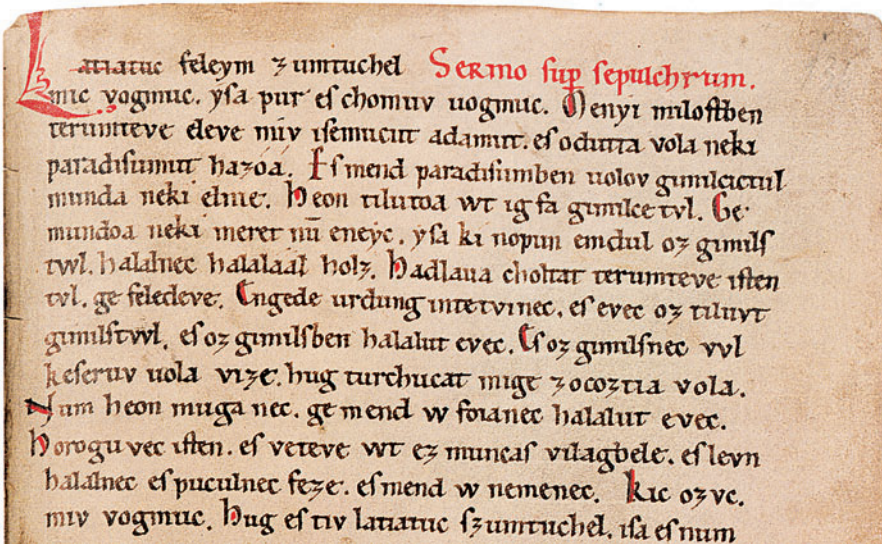 Latiatuc feleym zumtuchel Sermo ſup̄ ſepulchrum.
mic vogmuc. yſa pur eſ chomuv uogmuc. Menyi miloſtben
terumteve eleve miv iſemucut adamut. eſ odutta vola neki
paradiſumut hazóá. Eſ mend paradiſumben uolov gimilcictul
munda neki elnie. Heon tilutoa wt ig fa gimilce tvl. Ge
mundoa neki meret nū eneyc. yſa ki nopun emdul oz gimilſ
twl. halalnec halaláál holz. Hadlaua choltat terumteve iſten
tvl. ge feledeve. Engede urdung intetvinec. eſ evec oz tiluvt
gimilſtvvl. eſ oz gimilſben halalut evec. Eſ oz gimilſnec vvl
keſeruv uola vize. hug turchucat mige zocoztia vola.
Num heon muga nec. ge mend w foianec halalut evec.
Horogu vec iſten. eſ veteve wt ez muncaſ vilagbele. eſ levn
halálnec eſ puculnec feze. eſ mend w nemenec. Kic ozvc.
miv vogmuc. Hug eſ tiv latiatuc ſzumtuchel. iſa eſ num